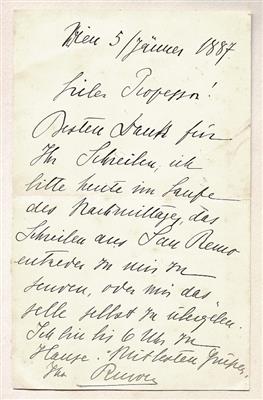 Wien 5/Jänner 1887
Lieber Professor!
Besten Dank für
Ihr Schreiben, ich
bitte heute im Laufe
des Nachmittages, das
Schreiben aus San Remo
entweder zu mir zu
senden, oder mir das
selbe selbst zu übergeben.
Ich bin bis 6 Uhr zu
Hause. Mit besten Grüßen
Ihr